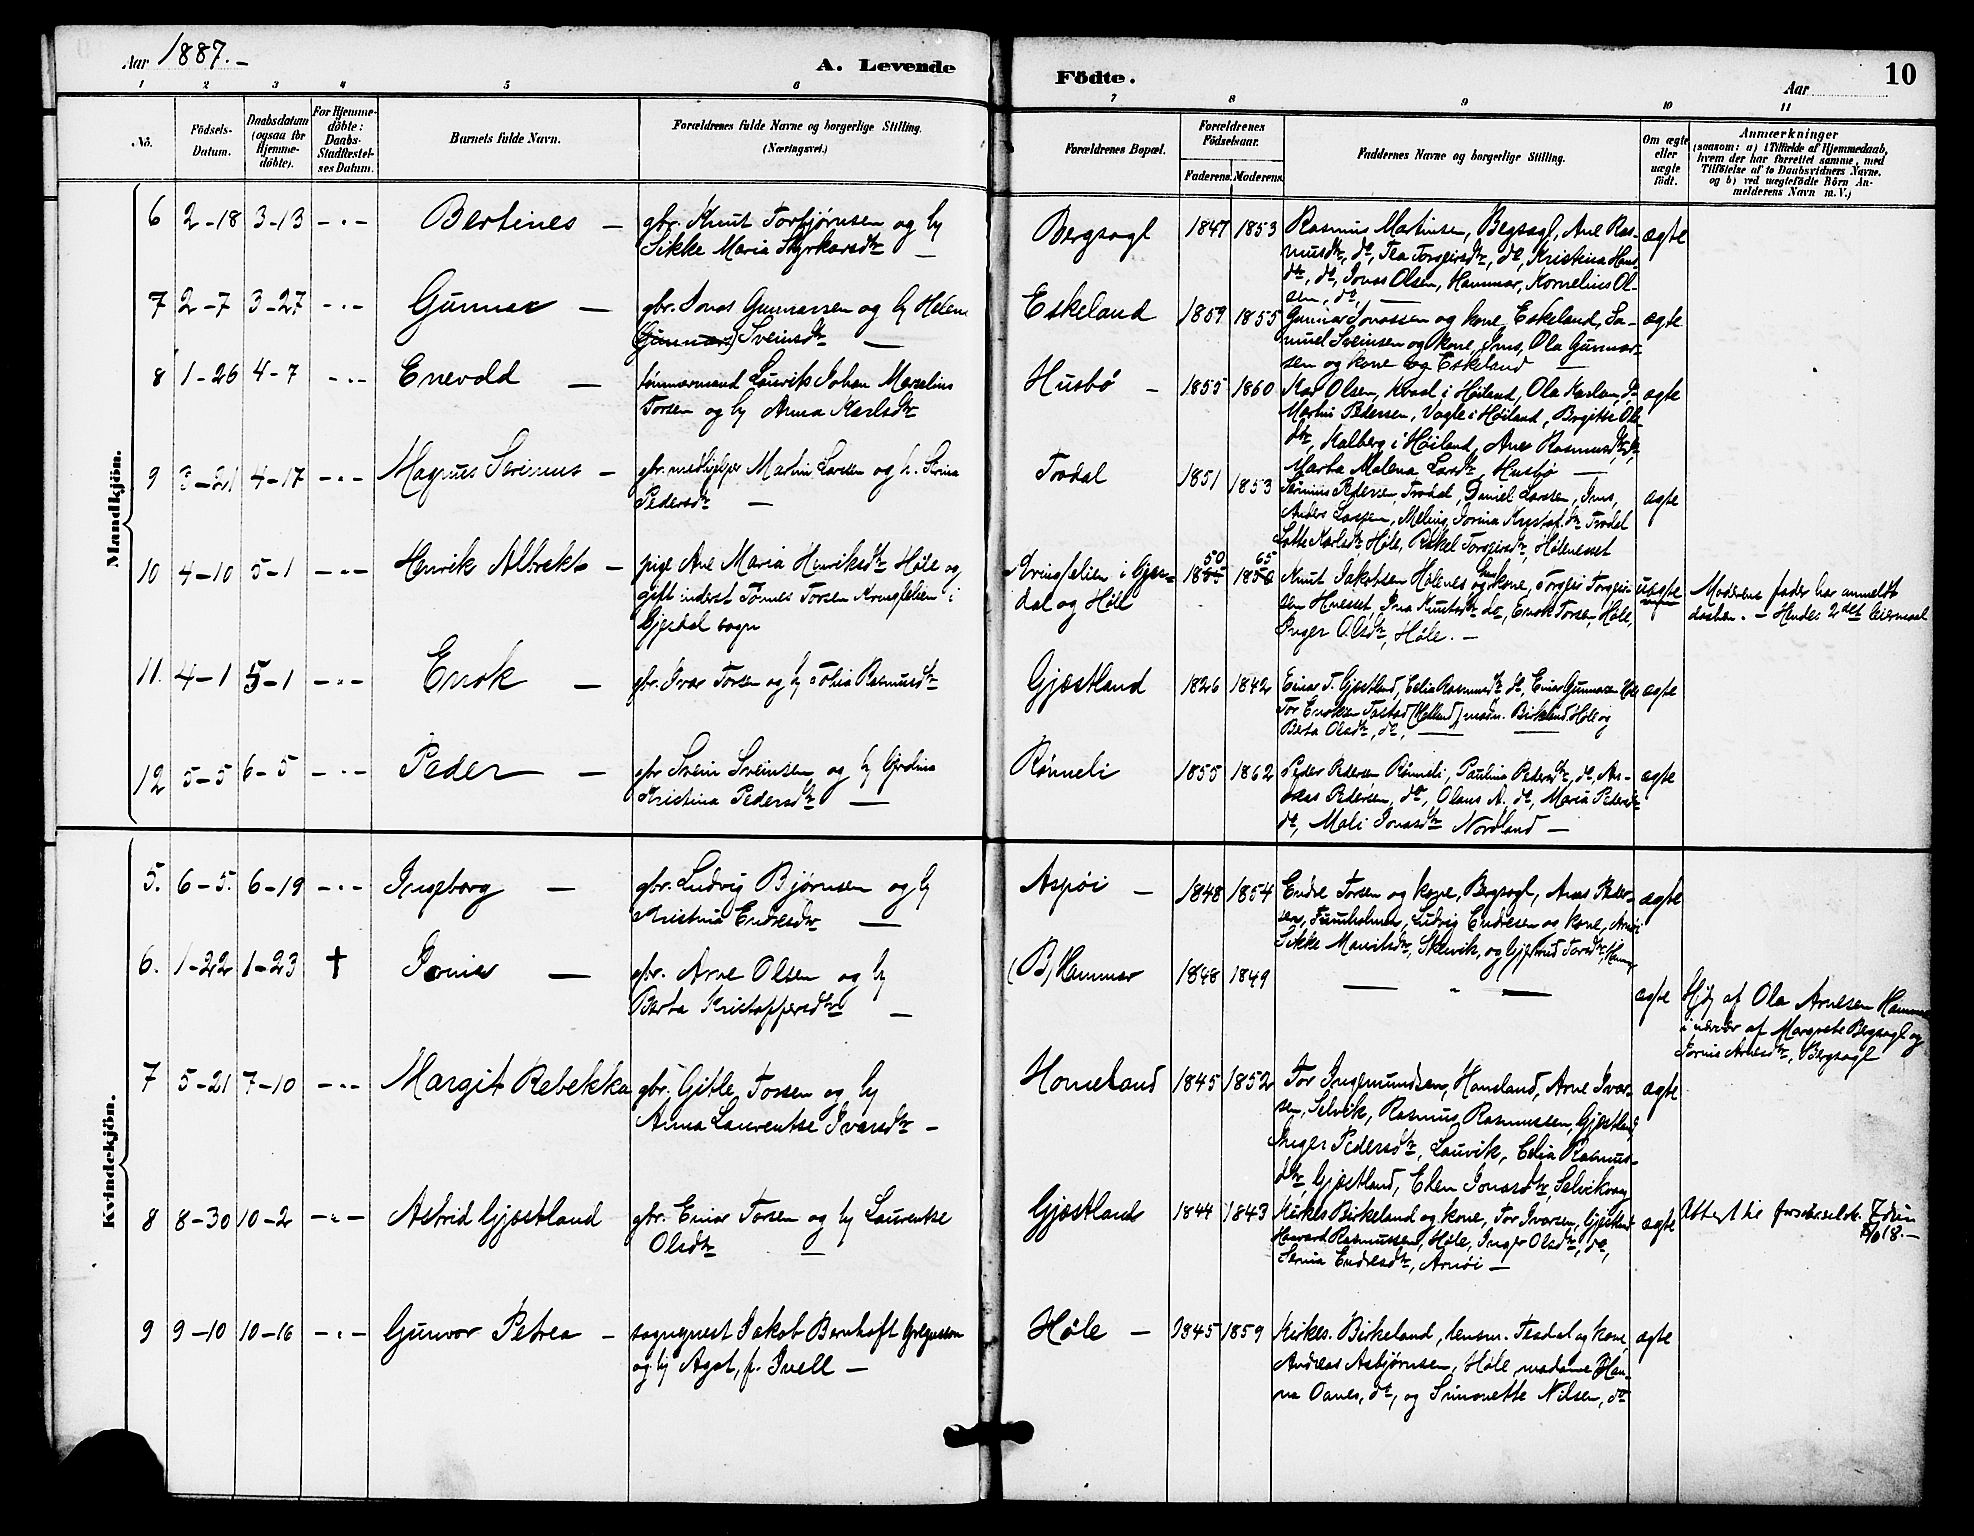 Aar 1887.-
A. Levende
Födte.
Aar
10
1 2 3 4 5 6
7 8 9 10 11
No.
Födsels-
Datum.
Daabsdatum
(ogsaa for
Hjemme-
döbte).
For Hjemme-
döbte:
Daabs-
Stadfæstel-
ses Datum.
Barnets fulde Navn.
Forældrenes fulde Navne og borgerlige Stilling.
(Næringsvei.)
Forældrenes Bopæl.
Forældrenes
Födselsaar.
Faderens. Moderens.
Faddernes Navne og borgerlige Stilling.
Om ægte
eller
uægte
födt.
Anmærkninger
(saasom: a) i Tilfælde af Hjemmedaab,
hvem der har forrettet samme, med
Tilföielse af to Daabsvidners Navne,
og b) ved uægtefödte Börn An-
melderens Navn m. V.)
Mandkjön.
6 2-18 3-13 -"- Bertines -
gbr. Knut Torbjørnsen og h
Sikke Maria Styrkarsdtr -
Bergsagl 1847 1853
Rasmus Martinsen, Bergsagl, Ane Ras-
musdtr, do, Tea Torgeirsdtr, do, Kristina Hans
dtr, do, Jonas Olsen, Hammar, Kornelius Ol-
sen, do, -
ægte
7 2-7 3-27 -"- Gunnar -
gbr. Jonas Gunnarsen og h Helene
Sveinsdtr -
Eskeland 1859 1855
Gunnar Jonassen og kone, Eskeland, Sa-
muel Sveinsen og kone, Ims, Ola Gunnar-
sen og kone Eskeland -
ægte
8 1-26 4-7 -"- Enevold -
tømmermand Lauvvik Johan Marselius
Torsen og h Anna Karlsdtr
Husbø - 1855 1860
Karl Olsen, Kvaal i Høiland, Ola Karlsen, do
Martin Pedersen, Vagle i Høiland, Birgitte Ols
dtr, Kalberg i Høiland, Ane Rasmusdtr, do,
Marta Malena Larsdtr, Husbø -
ægte
9 3-21 4-17 -"- Magnus Serinius -
gbr. medhjelper Martin Larsen og h. Serina
Pedersdtr -
Trodal 1851 1853
Serinius Pedersen, Trodal, Daniel Larsen, Ims,
Anders Larsen, Meling, Jorina Kristof.dtr Trodal
Lotte Karlsdtr Høle, Rakel Torgeirsdtr, Hølenesset
ægte
10 4-10 5-1 -"- Henrik Albrekt -
pige Ane Maria Henriksdtr Høle og
gift inderst Tønnes Torsen Kringlelien i
Gjesdal sogn
Kringlelien i Gjes-
dal og Høle
1850 1865
Knut Jakobsen Hølenes og kone, Torgeir Torgeir-
sen Hnesset, Ina Knutsdtr do, Enok Torsen, Høle,
Inger Olsdtr, Høle. -
uægte
Moderens fader har anmeldt
daaben. - Hendes 2det leiermaal
11. 4-1 5-1 -"- Enok -
gbr. Ivar Torsen og h Tolia Rasmusdtr
Gjæstland 1826 1842
Einar T. Gjæstland, Celia Rasmusdtr do, Einar Gunnarsen Høle
Tor Enoksen Tastad (Helland) madm. Birkeland Høle og
Berta Olsdtr, do, -
ægte
12 5-5 6-5 -"- Peder -
gbr Svein Sveinsen og h Gurdina
Kristina Pedersdtr -
Rønneli 1855 1862
Peder Pedersen Rønneli, Paulina Pedersdtr, do, An-
dreas Pedersen, do, Olaus A. do, Maria Pedersdtr
do, Mali Jonasdtr Nordland -
ægte
Kvindekjön.
5. 6-5. 6-19 -"- Ingeborg -
gbr. Ludvig Bjørnsen og h
Kristina Endresdtr -
Aspøi - 1848 1854
Endre Torsen og kone, Bergsagl, Arnes Peder-
sen, Tuunholmen, Ludvig Endresen og kone, Arnøi
Sikke Mauritsdtr, Skeivik, og Gjertrud Torsdtr, Hammar
ægte
6. 1-22 1-23 † Jonine -
gbr. Arne Olsen og h
Berta Kristoffersdtr -
(B) Hammar 1848 1849
- " -
ægte
Hjdøbt af Ola Arnesen Hammar
i nærvær af Margrete Bergsagl og
Jorine Arnesdtr, Bergsagl
7 5-21 7-10 -"- Margit Rebekka
gbr. Gitle Torsen og h
Anna Laurentse Ivarsdtr -
Homeland 1845 1852
Tor Ingemundsen, Homeland, Arne Ivar-
sen, Selvik, Rasmus Rasmussen, Gjæstland,
Inger Pedersdtr, Lauvik, Celia Rasmus-
dtr, Gjæstland, Elen Jonasdtr, Selvikvaag
ægte
8 8-30 10-2 -"- Astrid Gjæstland
gbr. Einar Torsen og h Laurentse
Olsdtr -
Gjæstland 1844 1843
Kirkes Birkeland og kone, Tor Ivarsen, Gjæstland
Havard Rasmussen, Høle, Inger Olsdtr, do,
Serina Endresdtr, Arnøi -
ægte
Attest
18. -
9 9-10 10-16 -"- Gunvor Petrea -
sogneprest Jakob Bernhoft Gregussen
og h Agot, f. Ivell -
Høle - 1845 1859
Kirkes. Birkeland, lensm. Tesdal og kone,
Andreas Asbjørnsen, Høle madame Han-
na Oanes, do, og Simonette Nilsen, do
ægte